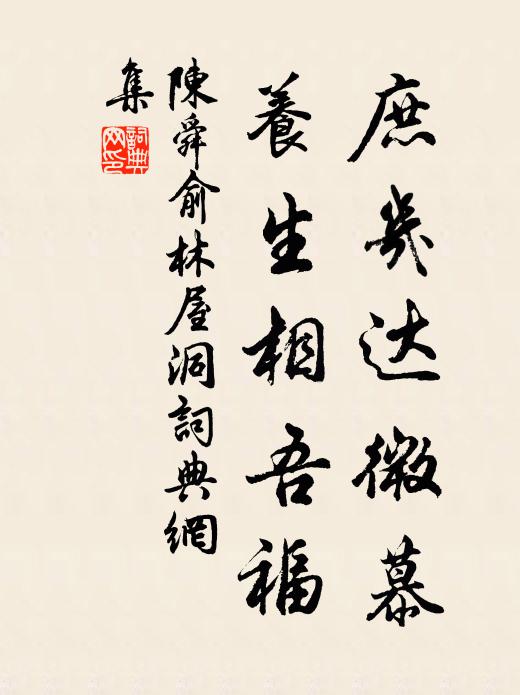 庶幾达微慕
養生相吾福
陳舜俞林屋洞詞典網
集
詞典網印